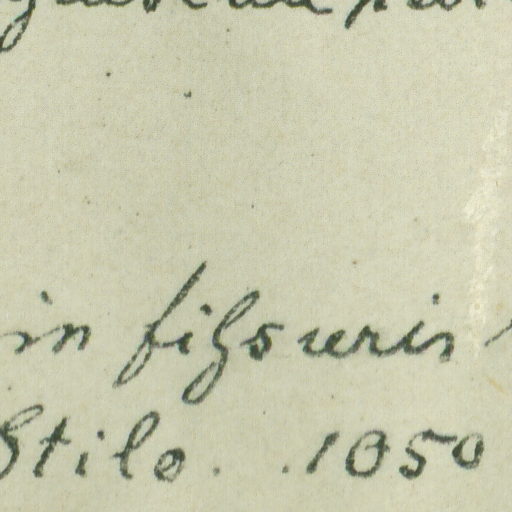 in fissuris
Stilo. . 1050